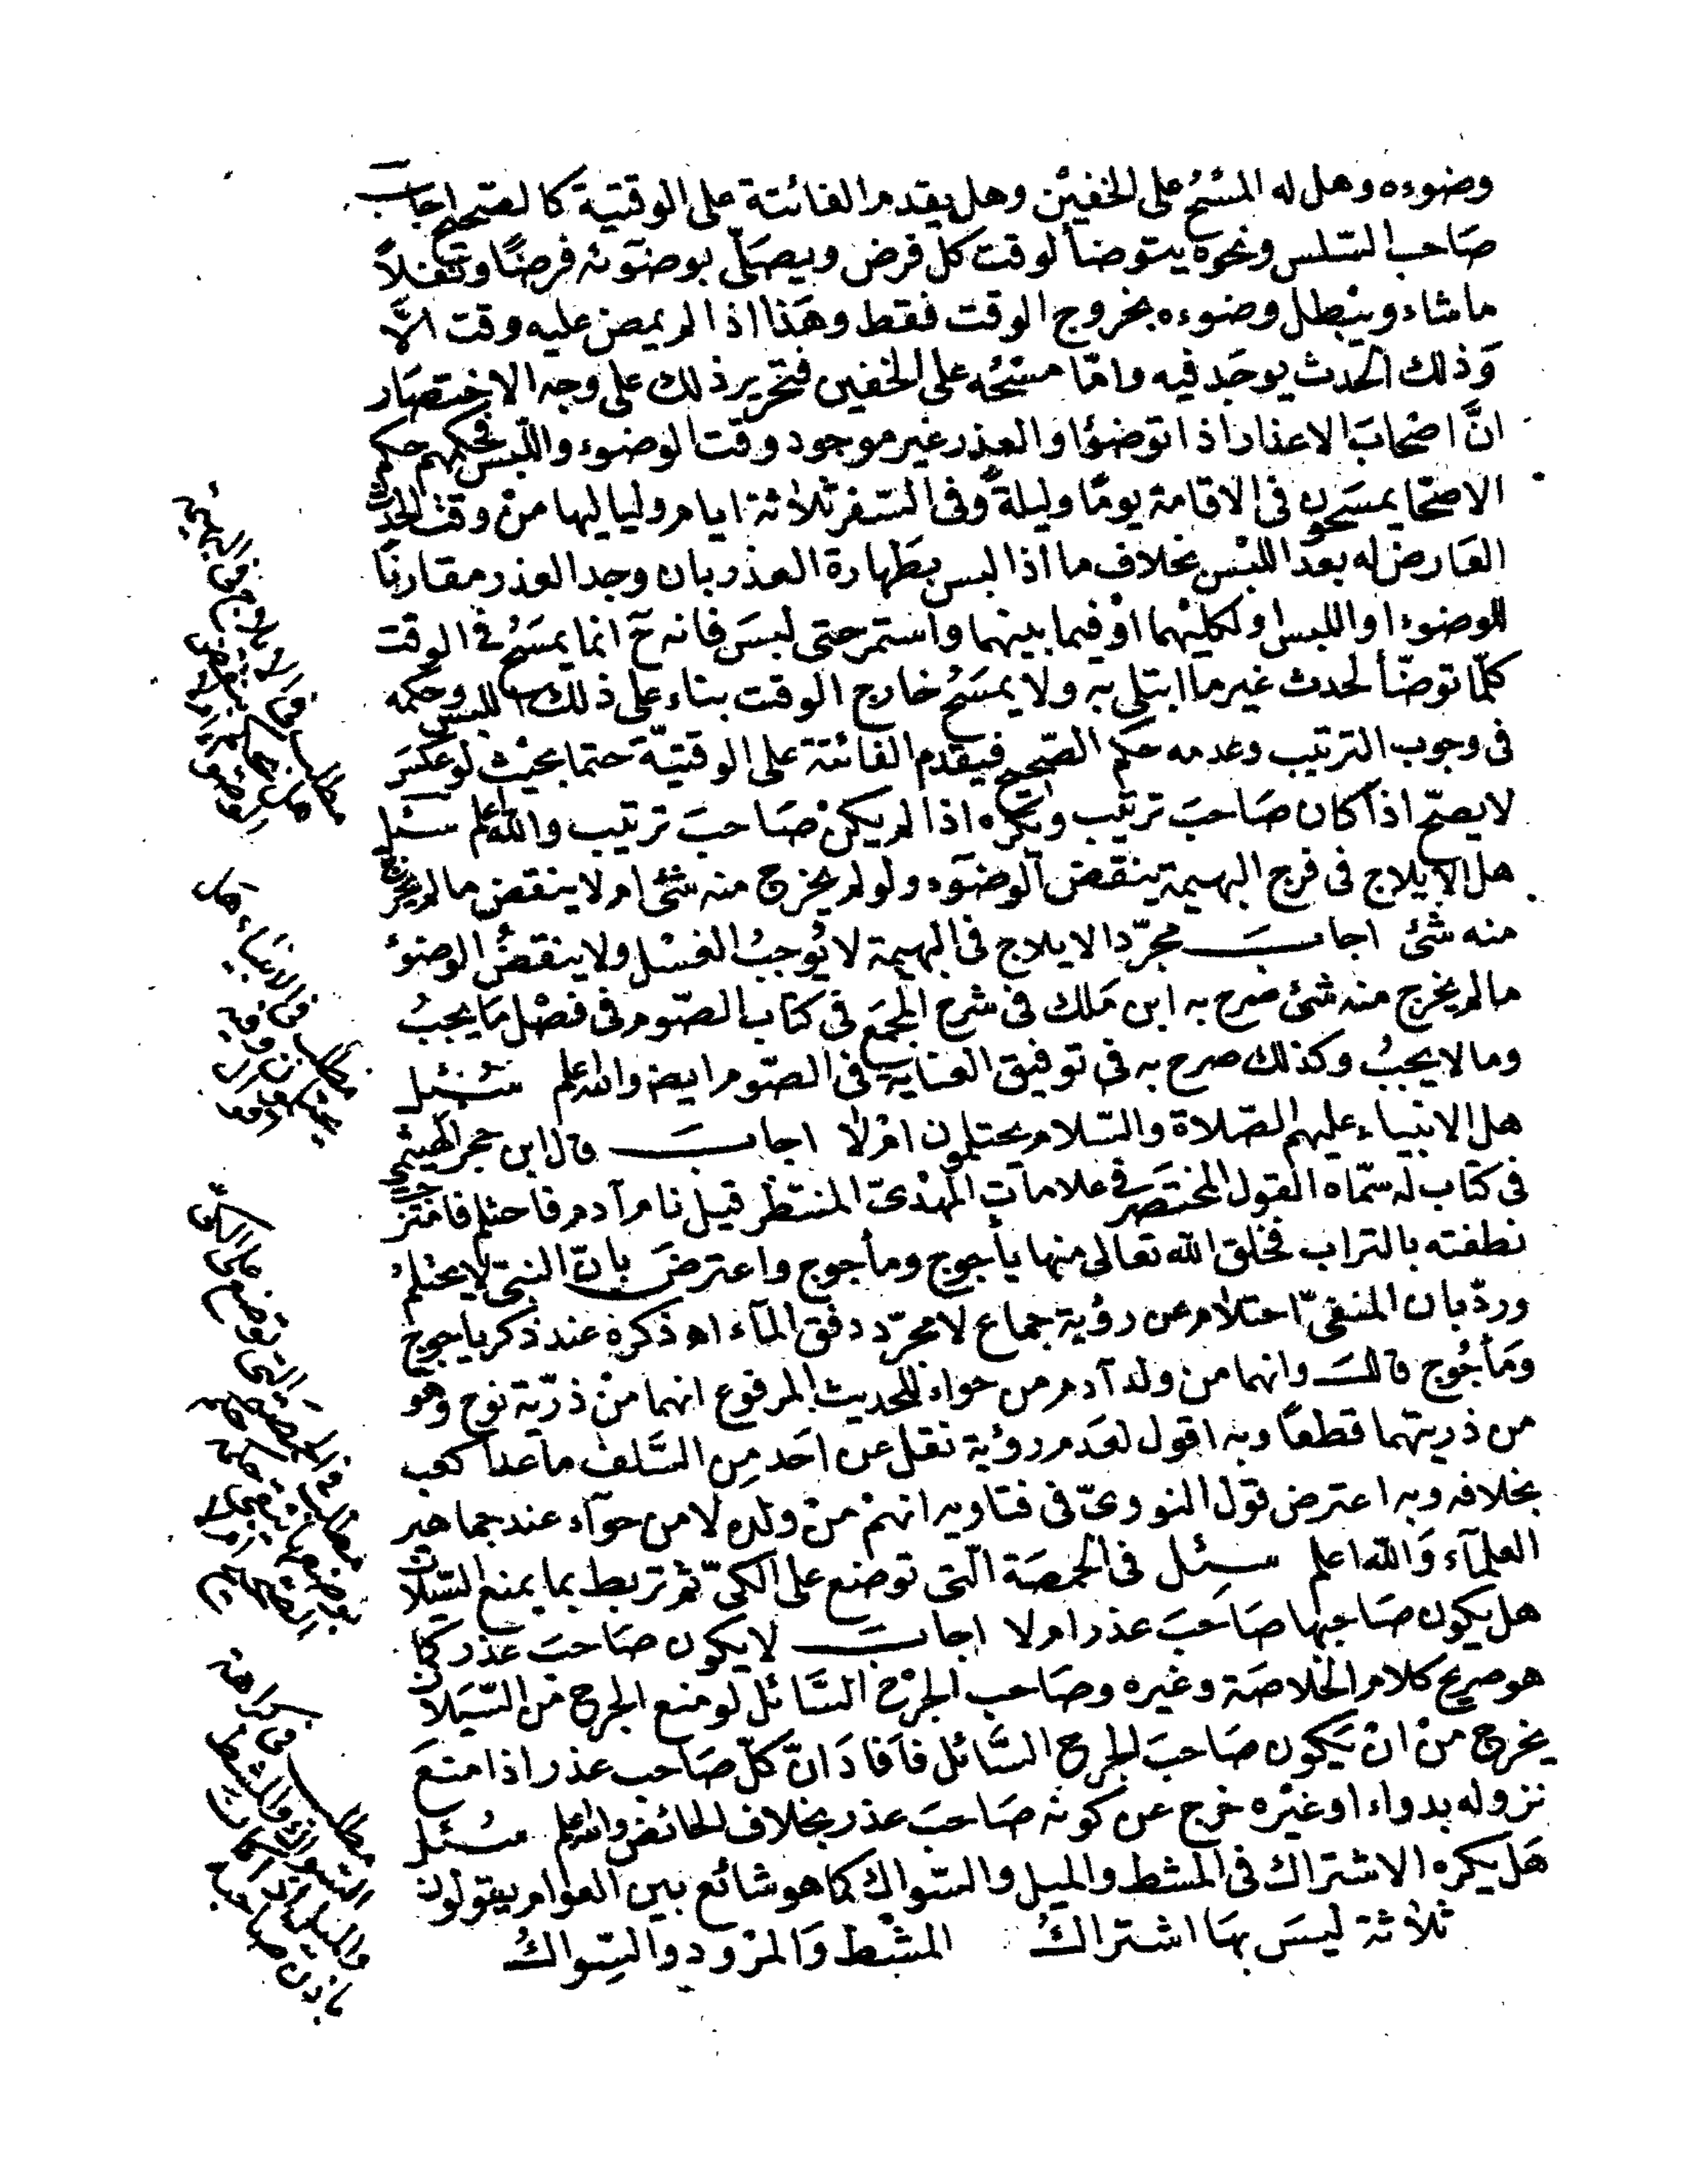 وضوءه وهل له المسْحُ على الخفيْن وهل يقدم الفائتة على الوقتية كالصحيح اجاب
صَاحب السّلس ونحوه يتوضأ لوقت كلّ فرض ويصَلّى بوضوئه فرضًا ونفلاً
ماشاء ويبْطل وضوءه بخروج الوقت فقط وهَذا اذا لم يمض عليه وقت الاَّ
وَذلك الحدث يوجَد فيه وامّا مسْحُه على الخفين فتحرير ذلك على وجه الاختصَار
انَّ اصْحابَ الاعذار اذا توضؤا والعذر غير موجود وقت الوضوء واللّبس فحكمهم حكم
الاصحّا يمسَحون فى الاقامة يومًا وليلةً وفى السّفر ثلاثة ايام ولياليها منْ وقت الحدث
العَارض له بعد اللبْس بخلاف ما اذا لبس بطَهارة العذر بان وجد العذر مقارنًا
للوضوء او اللبس او لكليْهما اوْ فيما بينهما واستمر حتى لبسَ فانه حَ انما يمسَحُ فى الوقت
كلّما توضّأ لحدث غير ما ابتلى به ولا يمسَحُ خارج الوقت بناء على ذلك اللبس وحكمه
فى وجوب الترتيب وعدمه حكم الصّحيح فيقدم الفائتة على الوقتيّة حتما بحيْث لو عكسَ
لا يصحّ اذا كان صَاحبَ ترتيب ويكره اذا لم يكنْ صَاحبَ ترتيب والله اعلم سئل
هل الايلاج فى فرج البهيمة ينقض الوضوء ولو لم يخرج منه شئ ام لا ينقض ما لم يخرج
منه شئ اجاب مجرّد الايلاج فى البهيمة لا يُوجبُ الغسْل ولا ينقضُ الوضوُ
ما لم يخرج منه شئ صرح به ابن مَلك فى شرح المجْمَع فى كتاب الصّوم فى فصْل مَا يجبُ
وما لا يجبُ وكذلك صرح به فى توفيق العناية فى الصّوم ايضا والله اعلم سُئل
هل الانبياء عليهم الصّلاة والسّلام يحتلمون امْ لا اجاب قال ابن حجر الهيثمى
فى كتاب له سمّاه القول المختصَر فى علامات المهْدىّ المنتظر قيل نام آدم فاحتلم فامتزجت
نطفته بالتراب فخلق الله تعالى منها يأجوج ومأجوج واعترضَ بانّ النبىّ لا يحتلمُ
وردّ بان المنفىّ احتلام عن رؤية جماع لا مجرّد دفق المآء اه ذكره عند ذكر ياجوج
ومَأجُوج قالَ وانهما من ولد آدم من حواء للحديث المرفوع انهما منْ ذرّية نوح وهو
من ذريتهما قطعًا وبه اقول لعَدم رؤية نقل عن احَد مِن السَّلف ما عدا كعب
بخلافه وبه اعترض قول النووىّ فى فتاويه انهمْ منْ ولده لا من حوآء عند جماهير
العلمآء وَالله اعلم سِئل فى الحمصَة الّتى توضع على الكىّ ثم تربط بما يمنع السّيلان
هل يكون صَاحبها صَاحبَ عذر ام لا اجاب لا يكون صَاحبَ عذر كما
هو صريح كلام الخلاصَة وغيره وصَاحب الجرْح السَّائل لو منع الجرح من السّيَلان
يخرج منْ انْ يَكون صَاحبَ الجرح السَّائل فاَفادَ انَّ كلّ صَاحب عذر اذا منعَ
نزوله بدواء او غيْره خرج عن كونه صَاحبَ عذر بخلاف الحائض والله اعلم سُئل
هَل يكره الاشتراك فى المشط والميل والسّواك كما هو شائع بين العوام يقولون
ثلاثة ليسَ بهَا اشتراكُ المشْط وَالمرْود والسِّواكُ
مطلب فى الايلاج فى البهيمة
هل ينقض
الوضوء ام لا
مطلب فى الانبياء هل
يحتلمون
مطلب فى الحمصة التى توضع على الكى
مطلب فى كراهة
السّواك والمشط
والميل